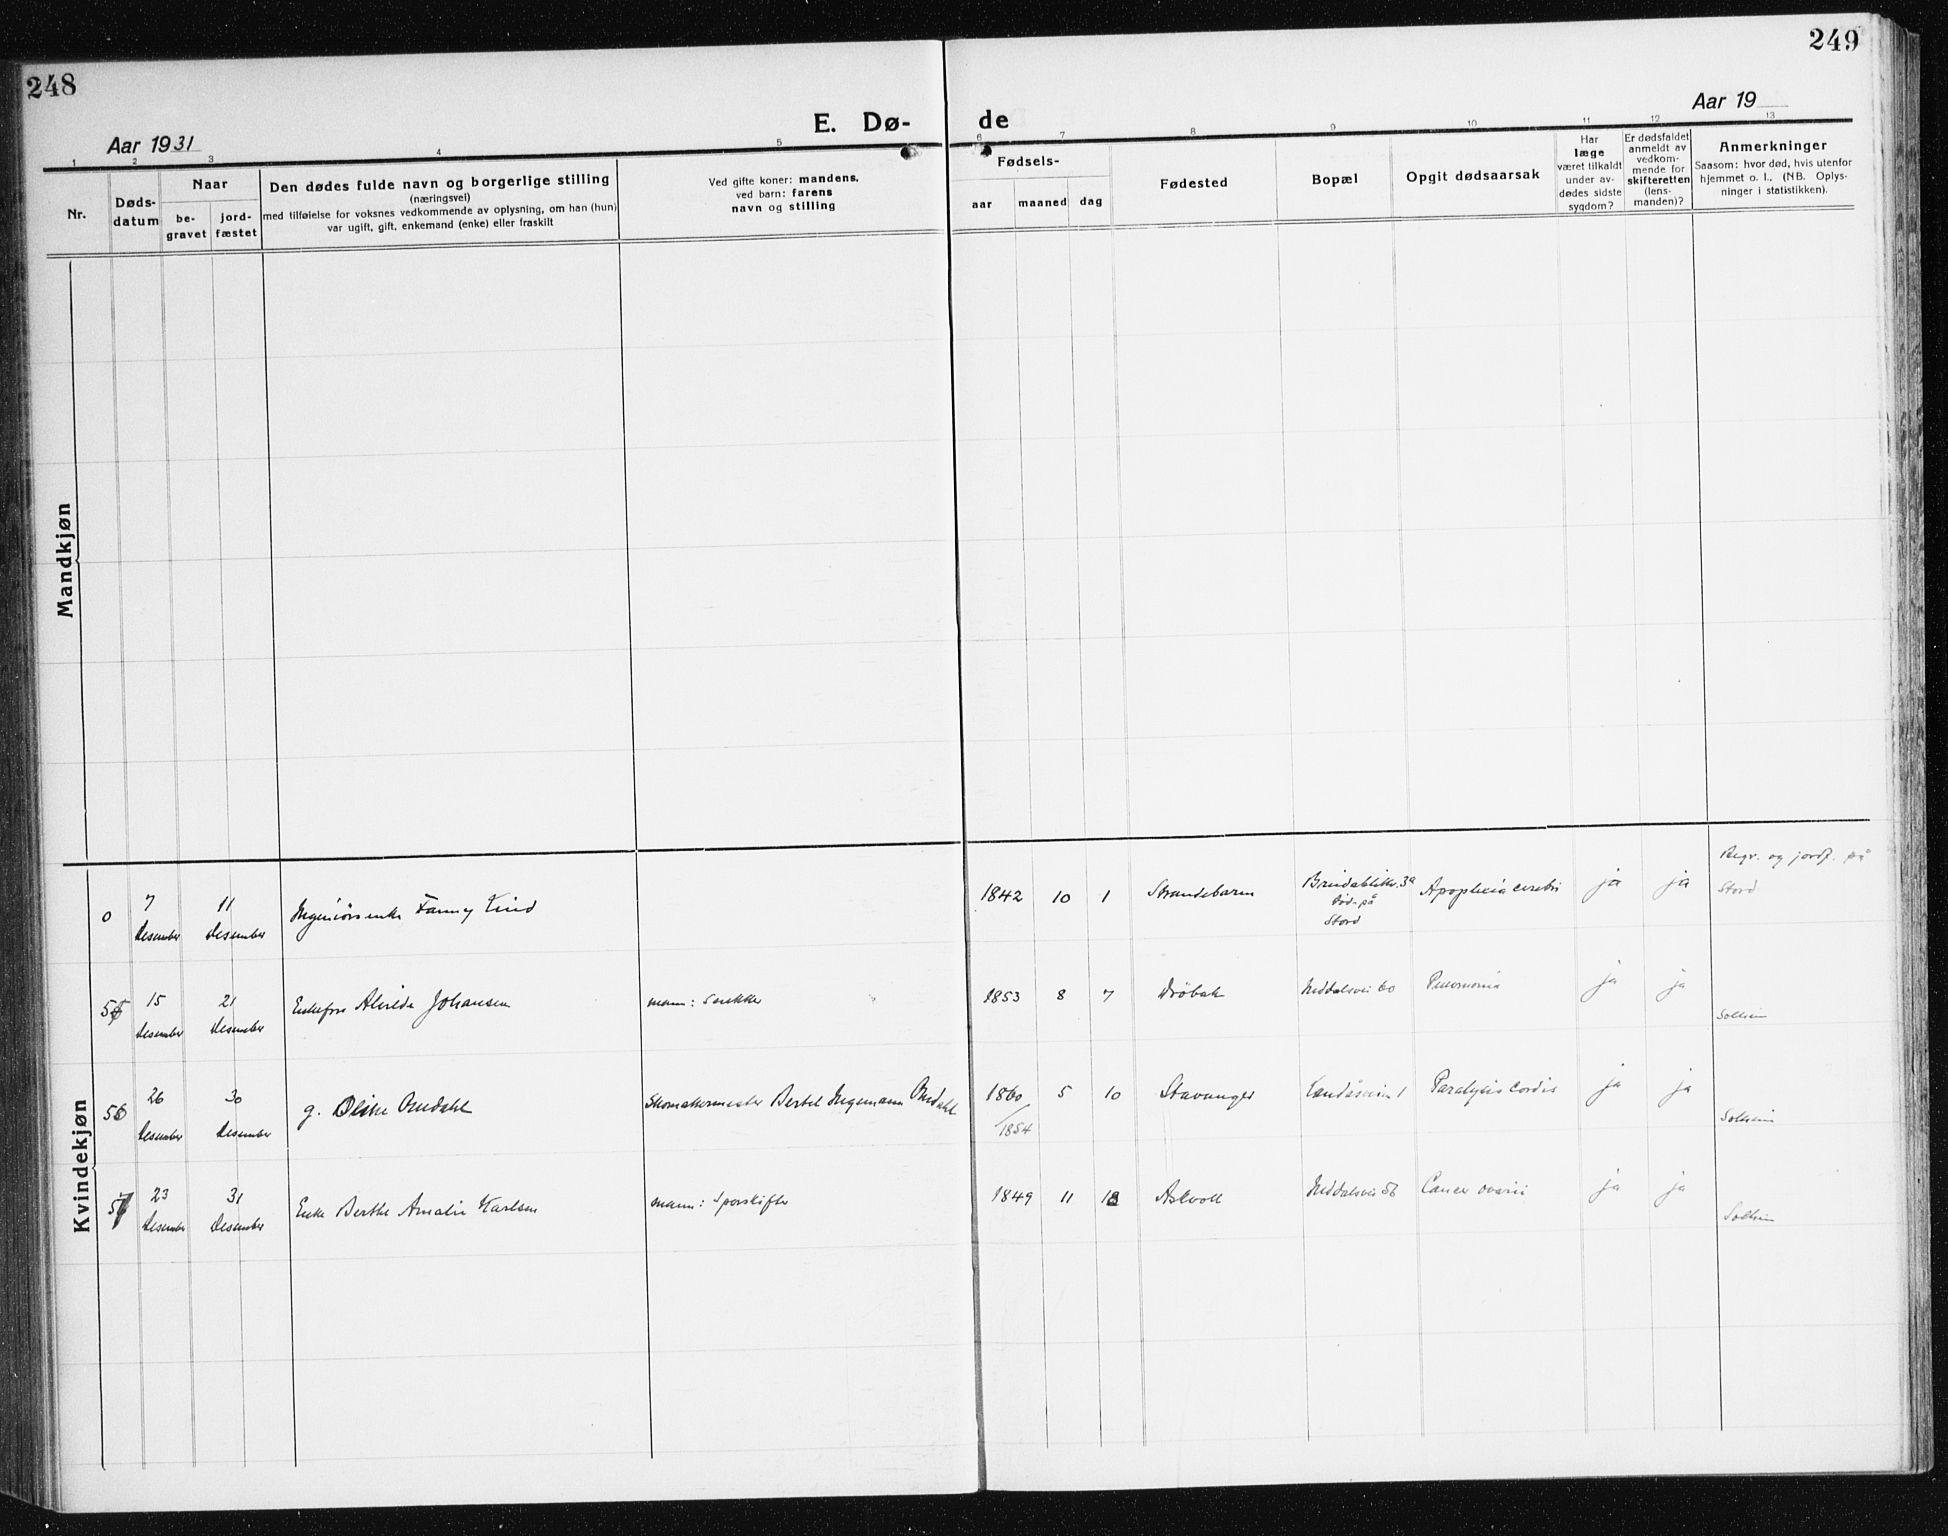 248
249
Aar 1931
E. Dø-
de
Aar 19
1 2 3 4 5 6 7 8 9 10 11 12 13
Nr.
Døds-
datum
Naar
be-
gravet
jord-
fæstet
Den dødes fulde navn og borgerlige stilling
(næringsvei)
med tilføielse for voksnes vedkommende av oplysning, om han (hun)
var ugift, gift, enkemand (enke) eller fraskilt
Ved gifte koner: mandens,
ved barn: farens
navn og stilling
Fødsels-
aar
maaned
dag
Fødested
Bopæl
Opgit dødsaarsak
Har
læge
været tilkaldt
under av-
dødes sidste
sygdom?
Er dødsfaldet
anmeldt av
vedkom-
mende for
skifteretten
(lens-
manden)?
Anmerkninger
Saasom: hvor død, hvis utenfor
hjemmet o. l., (NB. Oplys-
ninger i statistikken).
Mandkjøn
Kvindekjøn
0 7 desember 11 desember Ingeniørsenke Fanny Kind 1842 10 1 Strandebarm
død på
Stord
Apoplexia cerebri ja ja Begr. og jordf. på
Stord
55 15 desember 21 desember Enkefru Alvilde Johansen mann: Snekker 1853 8 7 Drøbak Inndalsvei 60 ja ja
Solheim
56 26 desember 30 desember g. Oline Bredahl Skomakermester Bertel Ingemann Bredahl 1860 5 10 Stavanger Landåsveien 1 Paralysis cordis ja ja
/1854
Solheim
57 23 desember 31 desember Enke Berthe Amalie Karlsen mann: Sporskifter 1849 11 18 Askvoll Inndalsvei 56 Cancer ovarii ja ja
Solheim